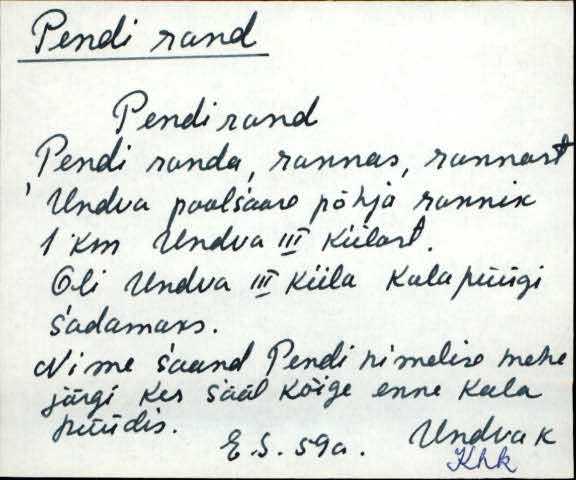 Pendi rand
Pendi rand
Pendi randa, rannas, rannast
Undva poolsaare põhja rannik
1 km Undva III külast.
Oli Undva III küla kalapüügi
sadamaks.
Nime saand Pendi nimelise mehe
järgi kes sääl kõige enne kala
püüdis.
E.S. 59a. Undva k
Khk